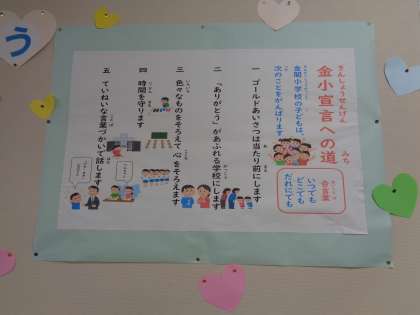 う
きんしょうせんげん みち
金小宣言への道
金関小学校の子どもは、
次のことをがんばります。
合言葉
いつでも
どこでも
だれにでも
一 ゴールドあいさつは当たり前にします
二 「ありがとう」があふれる学校にします
三 色々なものをそろえて心をそろえます
四 時間を守ります
五 ていねいな言葉づかいで話します